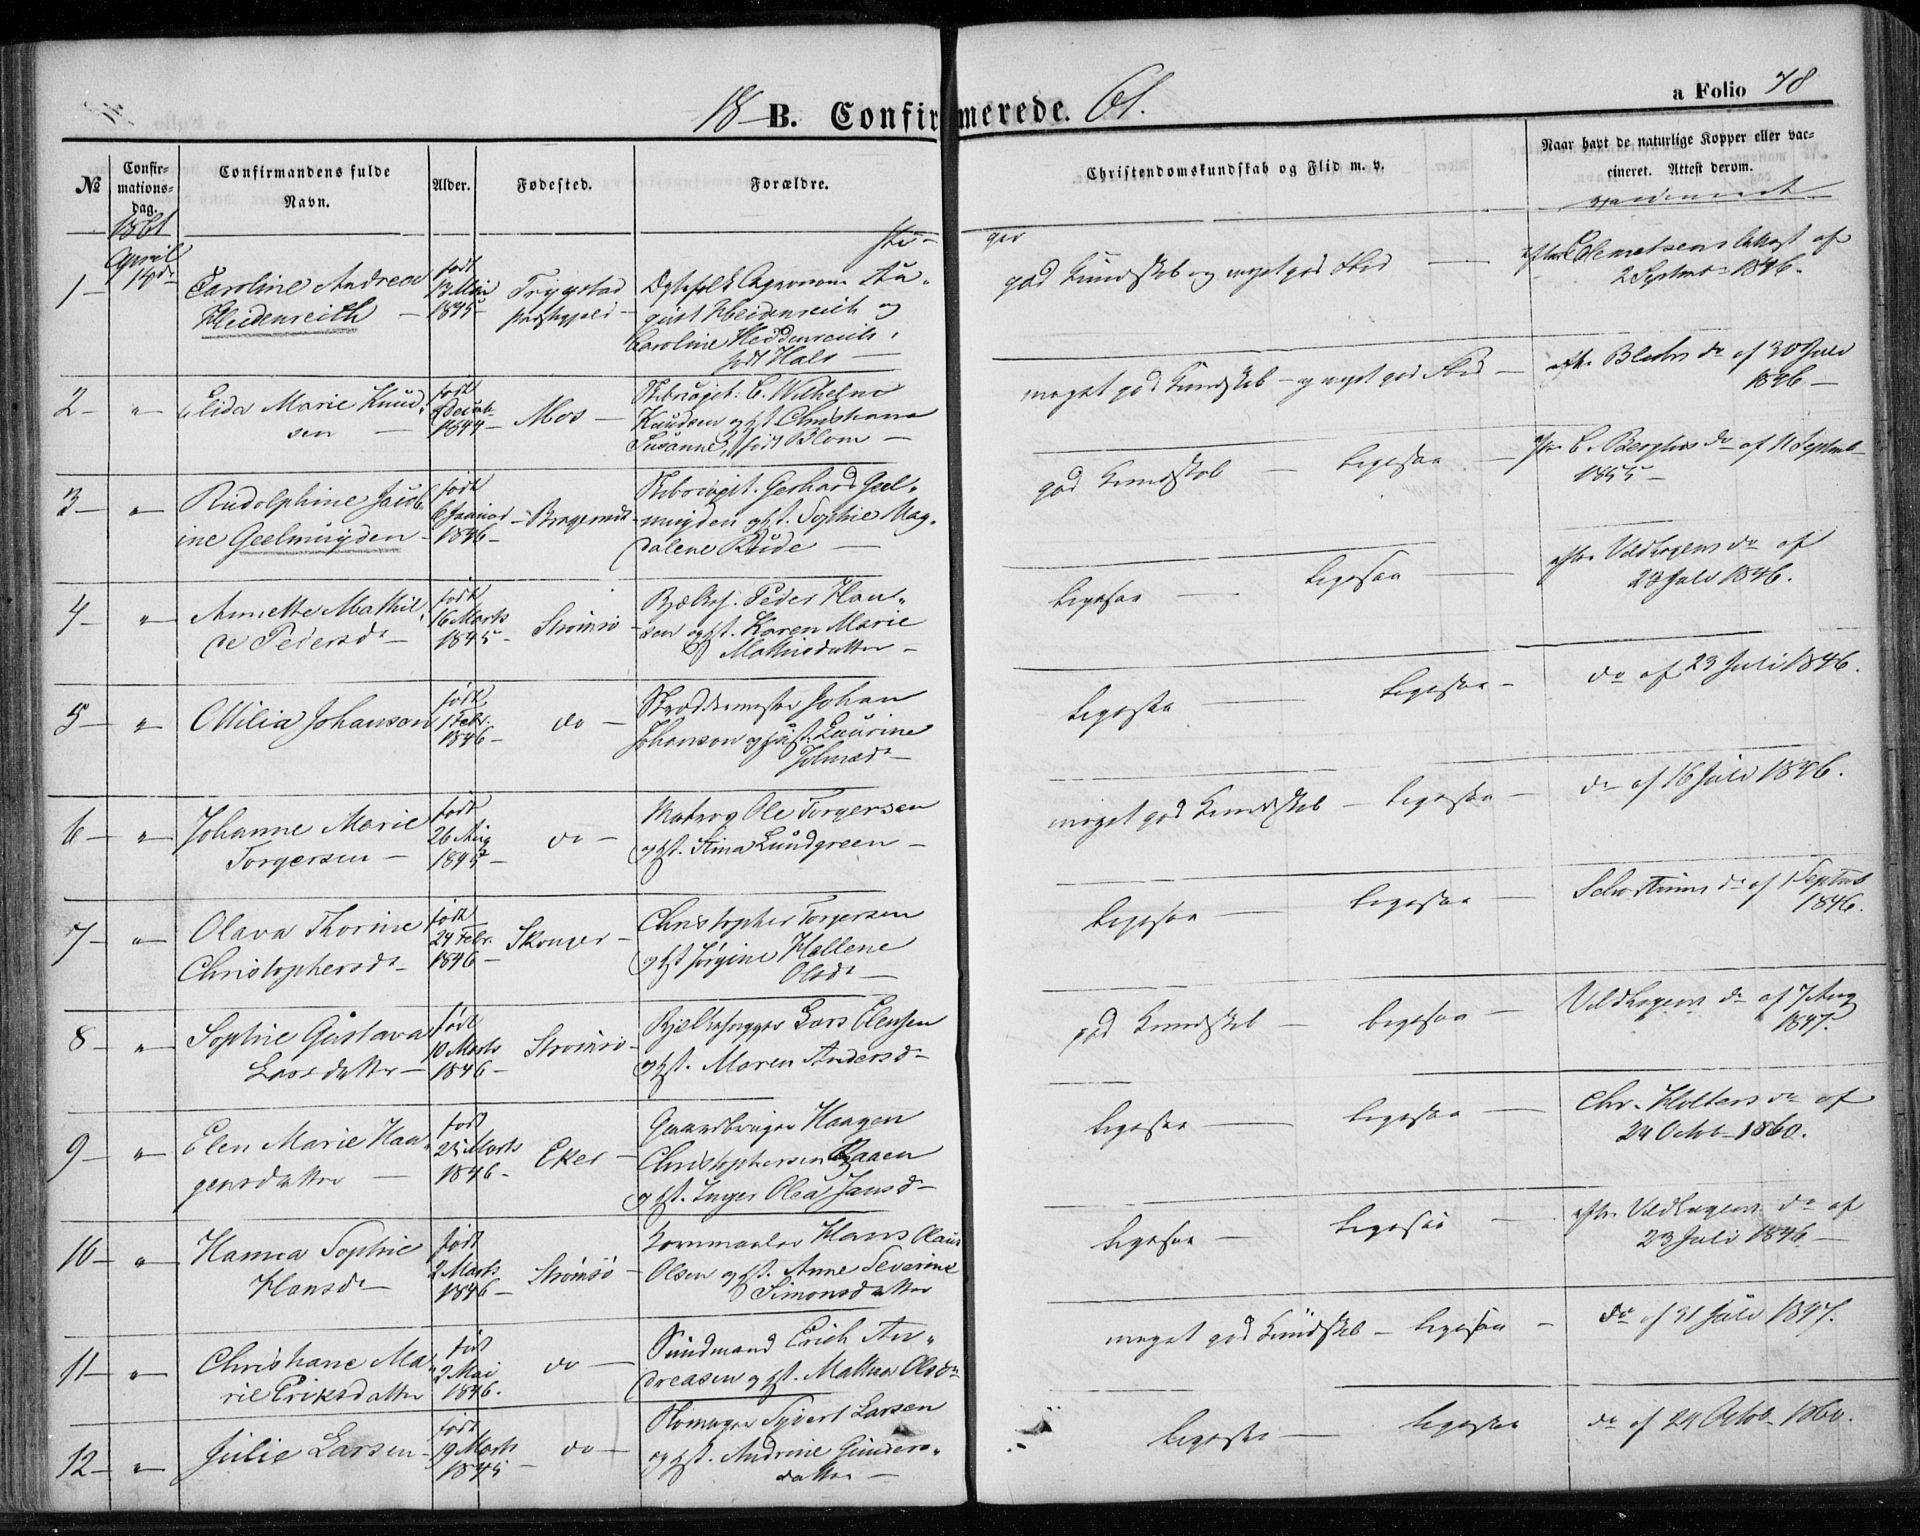 18 B. Confirmerede. 61.
a Folio 78
№
Confir-
mations-
dag.
Confirmandens fulde
Navn.
Alder.
Fødested.
Forældre.
Christendomskundskab og Flid m. v.
Naar havt de naturlige Kopper eller vac-
cineret. Attest derom.
1861
April
1 –
Caroline Andrea
Heidenreith –
født
13 Mai
1845 –
Trygstad
Præstegjeld –
Caroline Heidenreich,
født Hals –
god Kundskab og meget god Flid –
2 Septmb. 1846.
2 – " –
Elida Marie Knud,
sen –
født
1844 –
Mos –
C. Wilhelm
Knudsen og Hst. Christiana
Susanne, født Blom –
meget god Kundskab – og meget god Flid –
af 30 Juli
1846. –
3 – " –
Rudolphine Jacob,
ine Geelmuyden –
født
6 Januar
1846 –
Bragernæs –
Gerhard Geel„
muyden og Hst. Sophie Mag„
dalene Rude –
god Kundskab – ligesaa –
C. Berghs do af 11 Septmb
1855 –
4 – " –
Annette Mathil,
de Pedersd. –
født
16 Marts
1845 –
Strømsø –
Peder Han„
sen og Hst. Karen Marie
Mathisdatter –
ligesaa – ligesaa –
efter Veldhagens do af
23 Juli 1846.
5 – " –
Ottilia Johanson
født
1 Febr.
1846 –
do –
Skræddermester Johan
Johanson og Hst. Laurine
Holmsd. –
ligesaa – ligesaa –
do af 23 Juli 1846.
6 – " –
Johanne Marie
Torgersen –
født
26 Aug
1845 –
do –
Matros Ole Torgersen
og Hst. Stina Lundgreen –
meget god Kundskab – ligesaa –
do af 16 Juli 1846.
7 – " –
Olava Thorine
Christophersd. –
født
24 Febr.
1846 –
Skouger –
Christopher Torgersen
og Hst Jørgine Hellene
Olsd. –
ligesaa – ligesaa –
do af 1 Septmb
1846.
8 – " –
Sophie Gustava
Larsdatter –
født
10 Marts
1846 –
Strømsø –
Bjælkehugger Lars Olensen
og Hst. Maren Andersd –
god Kundskab – ligesaa –
Veldhagens do af 7 Aug
1847.
9 – " –
Elen Marie Haa„
gensdatter –
født
25 Marts
1846 –
Eker –
Gaardbruger Haagen
Christophersen Raaen
og Hst. Inger Olea Jansd –
ligesaa – ligesaa –
Chr. Holters do af
24 Octob 1860.
10 – " –
Hanna Sophie
Hansd. –
født
2 Marts
1846 –
Strømsø –
Kornmaaler Hans Olaus
Olsen og Hst. Anne Severine
Simonsdatter
ligesaa – ligesaa –
efter Veldhagens do af
23 Juli 1846 –
11 – " –
Christiane Ma„
rie Eriksdatter
født
2 Mai
1846.
do –
Sundmand Erich An„
dreasen og Hst. Mathea Olsdr
meget god Kundskab – ligesaa –
do af 31 Juli 1847.
12 – " –
Julie Larsen –
født
19 Marts
1845
do –
Sivert Larsen
og Hst. Andrine Gunders„
datter –
ligesaa – ligesaa
do af 24 Octob 1860.